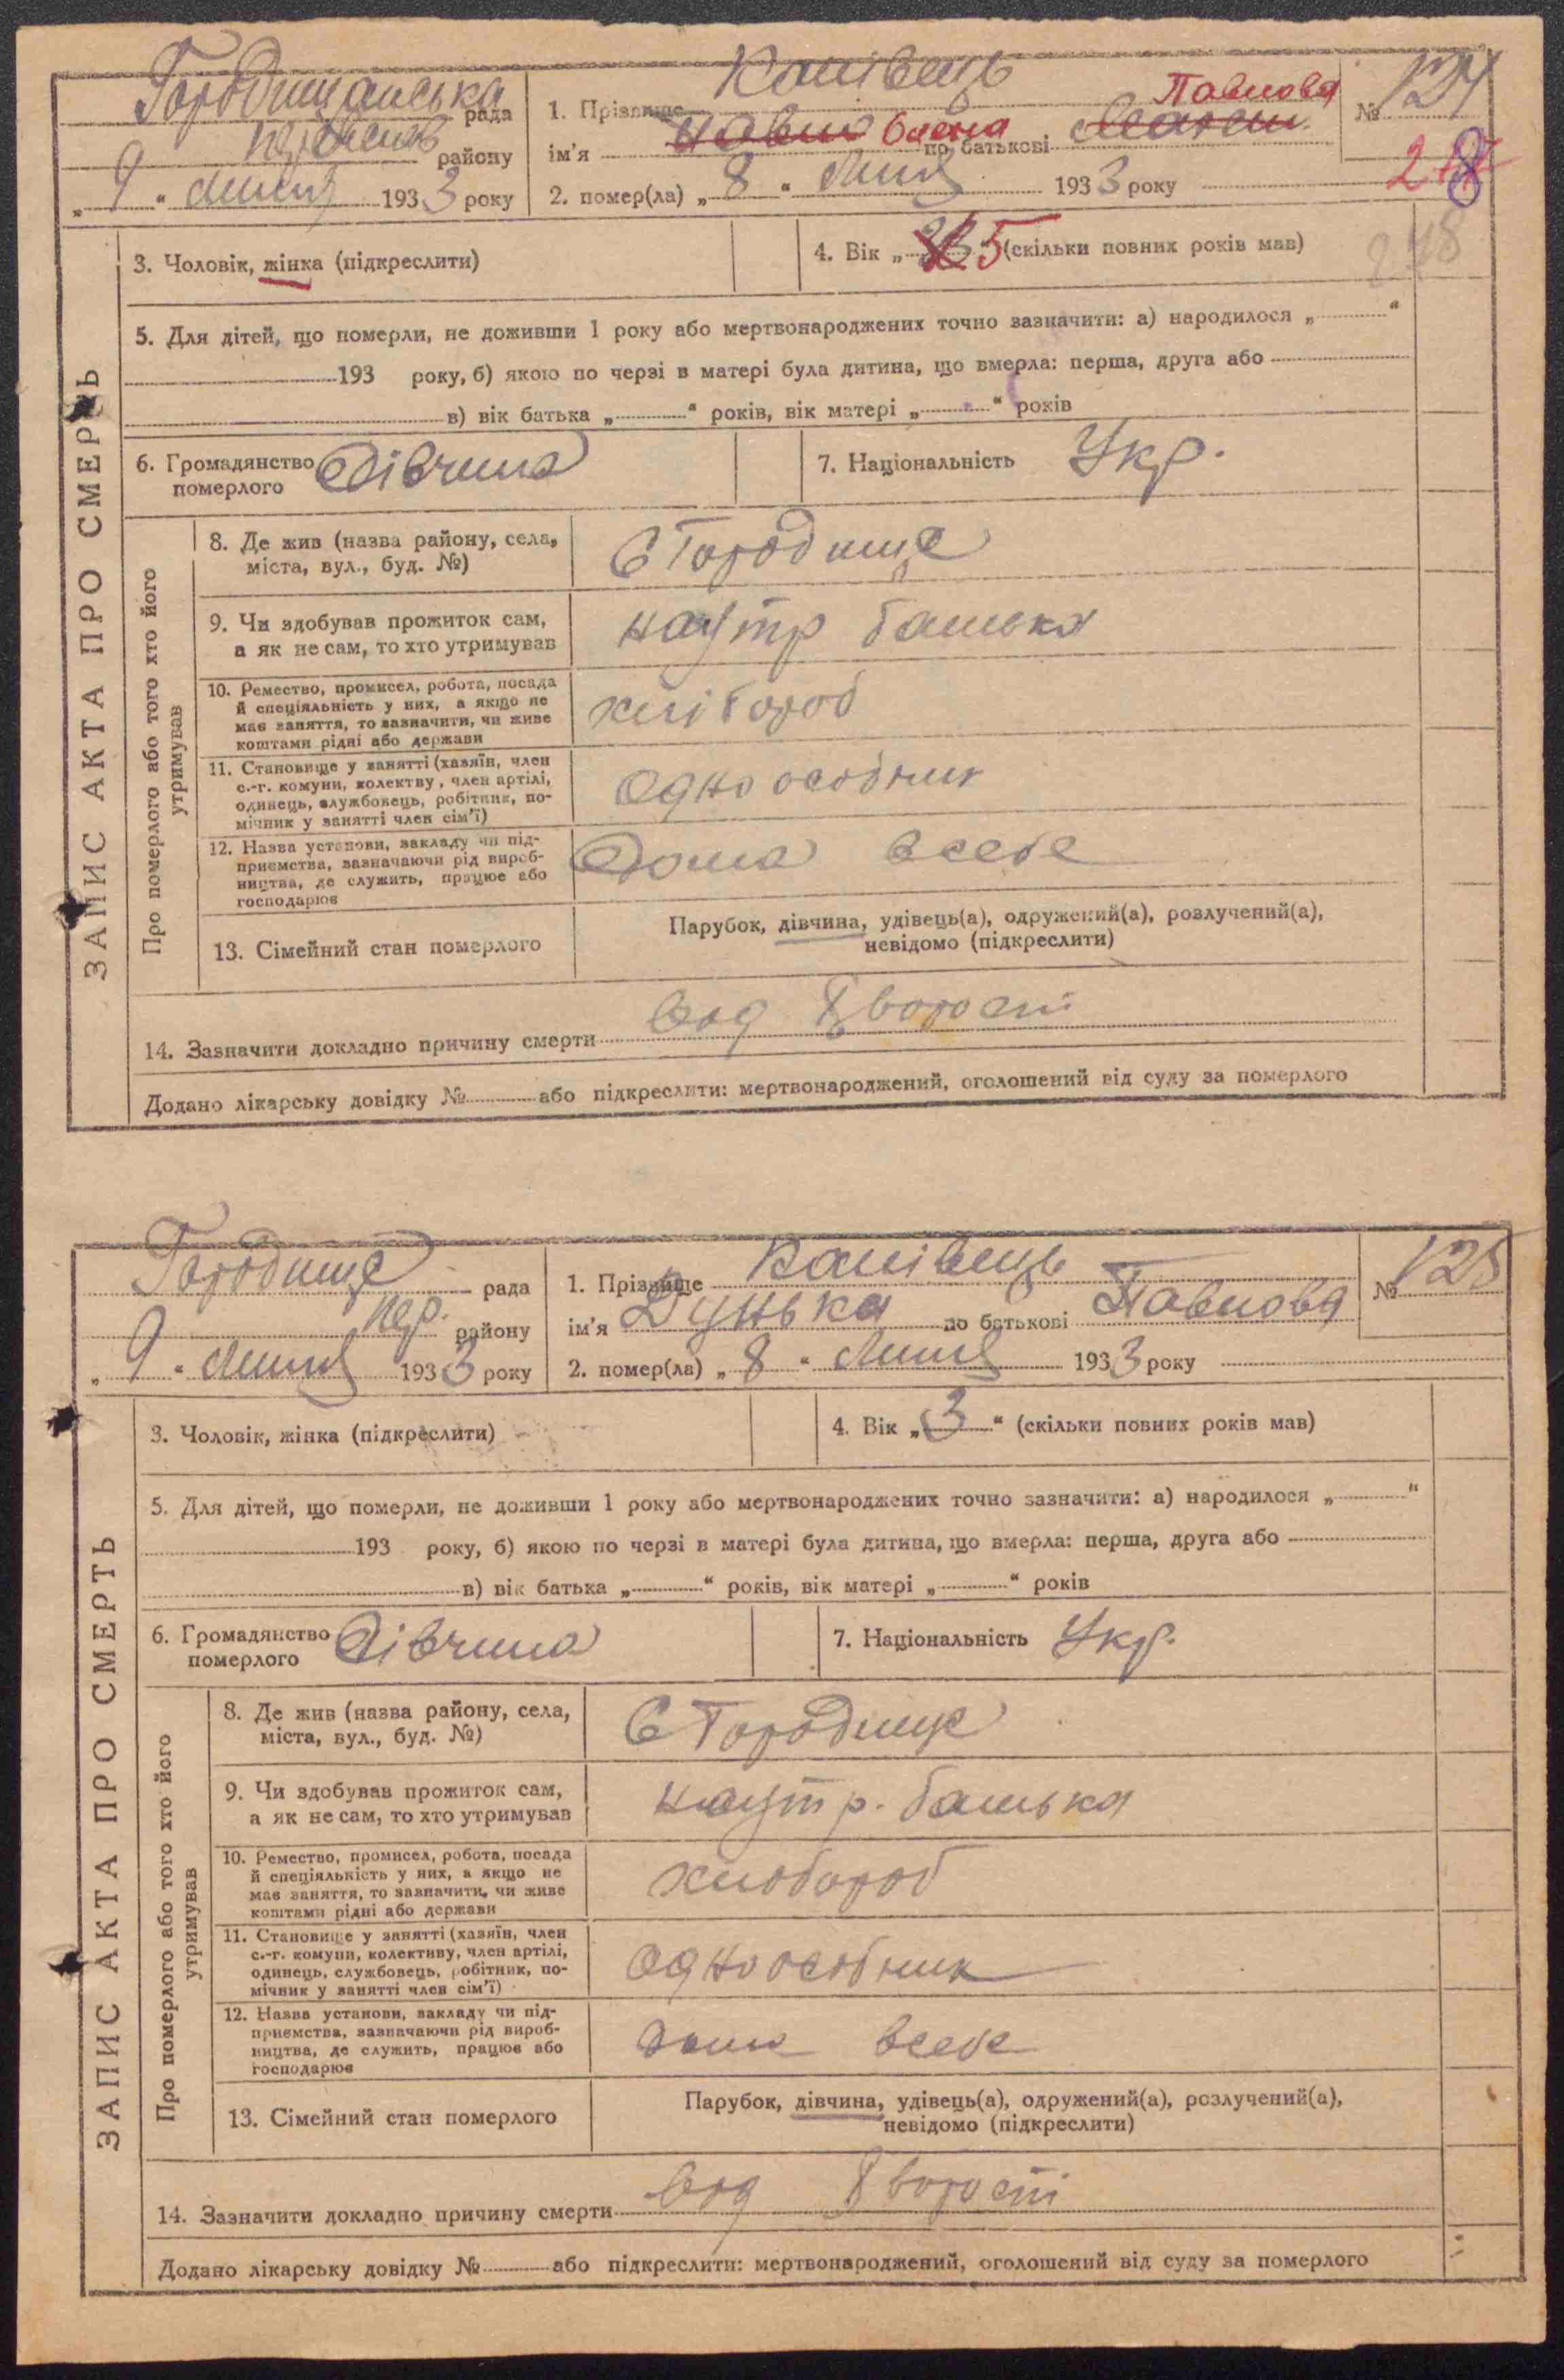 ЗАПИС АКТА ПРО СМЕРТЬ
Городищанська рада
району
„ 9 “ липня 1933 року
1. Прізвище Канівець
ім'я Павло Олена по батькові Павлова
№ 124
218
2. помер(ла) „ 8 “ липня 1933 року
248
3. Чоловік, жінка (підкреслити)
4. Вік „ 5 “ (скільки повних років мав)
5. Для дітей, що померли, не доживши 1 року або мертвонароджених точно зазначити: а) народилося „ “
193 року, б) якою по черзі в матері була дитина, що вмерла: перша, друга або
в) вік батька „ “ років, вік матері „ “ років
6. Громадянство померлого дівчина
7. Національність Укр.
Про померлого або того хто його утримував
8. Де жив (назва району, села,
міста, вул., буд. №)
С Городище
9. Чи здобував прожиток сам,
а як не сам, то хто утримував
на утр батька
10. Ремество, промисел, робота, посада
й спеціяльність у них, а якщо не
має заняття, то зазначити, чи живе
коштами рідні або держави
хлібороб
11. Становище у занятті (хазяїн, член
с.-г. комуни, колектву, член артілі,
одинець, службовець, робітник, по-
мічник у занятті член сім'ї)
одноособник
12. Назва установи, закладу чи під-
приємства, зазначаючи рід вироб-
ництва, де служить, працює або
господарює
дома в себе
13. Сімейний стан померлого
Парубок, дівчина, удівець(а), одружений(а), розлучений(а),
невідомо (підкреслити)
14. Зазначити докладно причину смерти
Додано лікарську довідку № або підкреслити: мертвонароджений, оголошений від суду за померлого
ЗАПИС АКТА ПРО СМЕРТЬ
Городище рада
пер. району
„ 9 “ липня 1933 року
1. Прізвище Канівець
ім'я Дунька по батькові Павлова
№ 125
2. помер(ла) „ 8 “ липня 1933 року
3. Чоловік, жінка (підкреслити)
4. Вік „ 3 “ (скільки повних років мав)
5. Для дітей, що померли, не доживши 1 року або мертвонароджених точно зазначити: а) народилося „ “
193 року, б) якою по черзі в матері була дитина, що вмерла: перша, друга або
в) вік батька „ “ років, вік матері „ “ років
6. Громадянство померлого дівчина
7. Національність Укр.
Про померлого або того хто його утримував
8. Де жив (назва району, села,
міста, вул., буд. №)
С Городище
9. Чи здобував прожиток сам,
а як не сам, то хто утримував
на утр. батька
10. Ремество, промисел, робота, посада
й спеціяльність у них, а якщо не
має заняття, то зазначити, чи живе
коштами рідні або держави
хлібороб
11. Становище у занятті (хазяїн, член
с.-г. комуни, колективу, член артілі,
одинець, службовець, робітник, по-
мічник у занятті член сім'ї)
одноособник
12. Назва установи, закладу чи під-
приємства, зазначаючи рід вироб-
ництва, де служить, працює або
господарює
дома в себе
13. Сімейний стан померлого
Парубок, дівчина, удівець(а), одружений(а), розлучений(а),
невідомо (підкреслити)
14. Зазначити докладно причину смерти
Додано лікарську довідку № або підкреслити: мертвонароджений, оголошений від суду за померлого